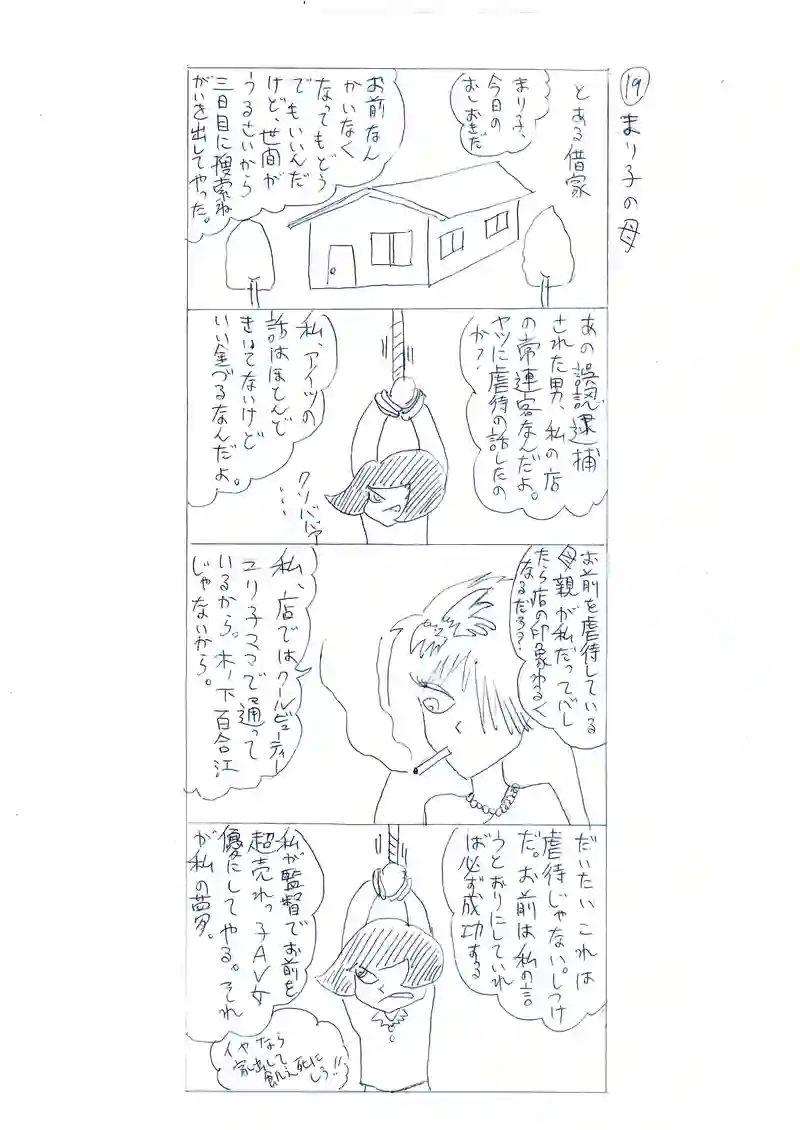 ⑲まり子の母
とある借家
まり子、
今日の
おしおきだ
お前なん
かいなく
なってもどう
でもいいんだ
けど、世間が
うるさいから
三日目に捜索ね
がいを出してやった。
あの誤認逮捕
された男、私の店
の常連客なんだよ。
ヤツに虐待の話したの
か？
私、アイツの
話はほとんど
きいてないけど
いい金づるなんだよ。
クソババア
・・・
お前を虐待している
母親が私だってバレ
たら店の印象わるく
なるだろ？
私、店ではクールビューティー
ユリ子ママで通って
いるから。木ノ下百合江
じゃないから。
だいたいこれは
虐待じゃない。しつけ
だ。お前は私の言
うとおりにしていれ
ば必ず成功する
私が監督でお前を
超売れっ子AV女
優にしてやる。それ
が私の夢。
イヤなら
家出して
飢え死に
しろ!!